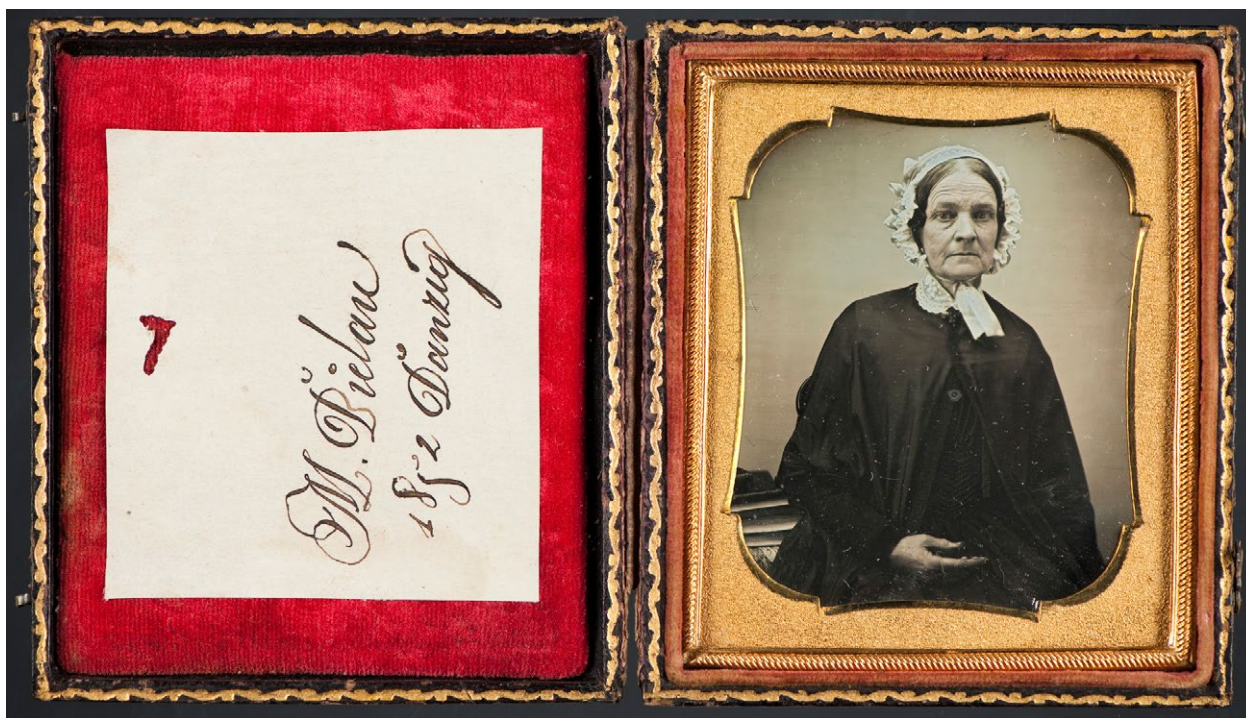 M. Dielau
1852 Danzig